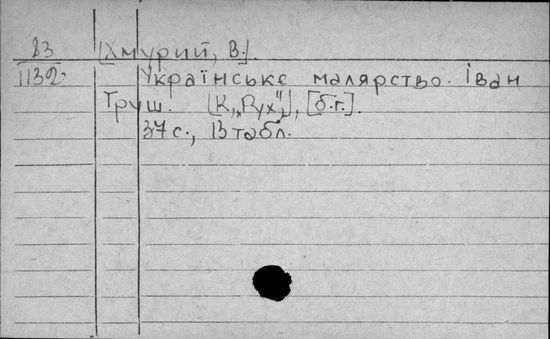 83 [Хмурий, В.].
11392 Українське малярство. Іван
Труш. [К, „Рух"], [б.г.].
37 с., 13 табл.